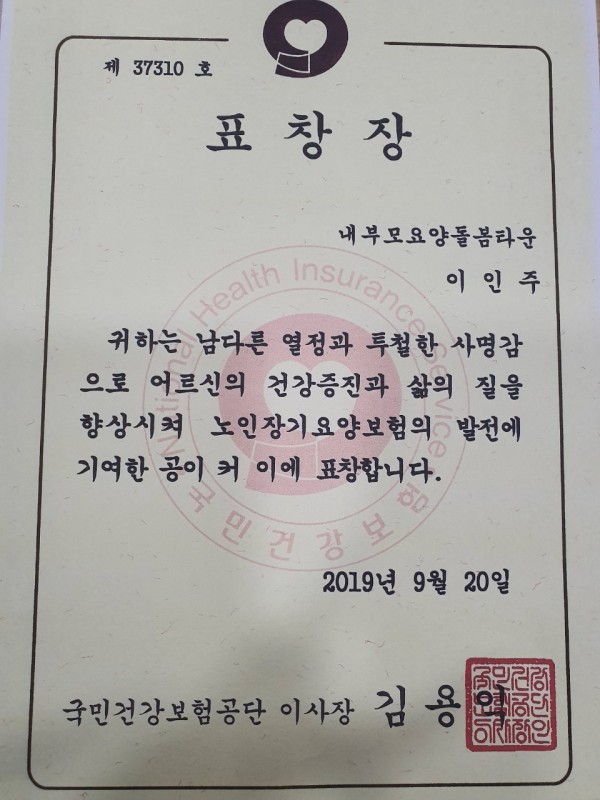 제 37310 호
표 창 장
내부모요양돌봄타운
이 인 주
귀하는 남다른 열정과 투철한 사명감
으로 어르신의 건강증진과 삶의 질을
향상시켜 노인장기요양보험의 발전에
기여한 공이 커 이에 표창합니다.
National Health Insurance Service
국민건강보험
2019년 9월 20일
국민건강보험공단 이사장 김 용 익